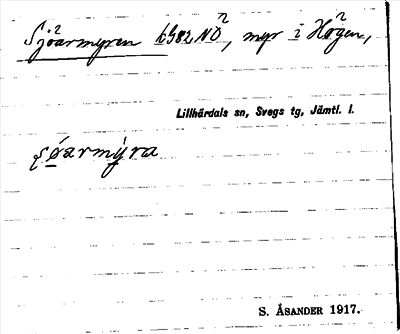 Sjöarmyren k982NÖ, myr i Högen,
Lillhärdals sn, Svegs tg, Jämtl. l.
ʂöarmy̆ra
S. ÅSANDER 1917.